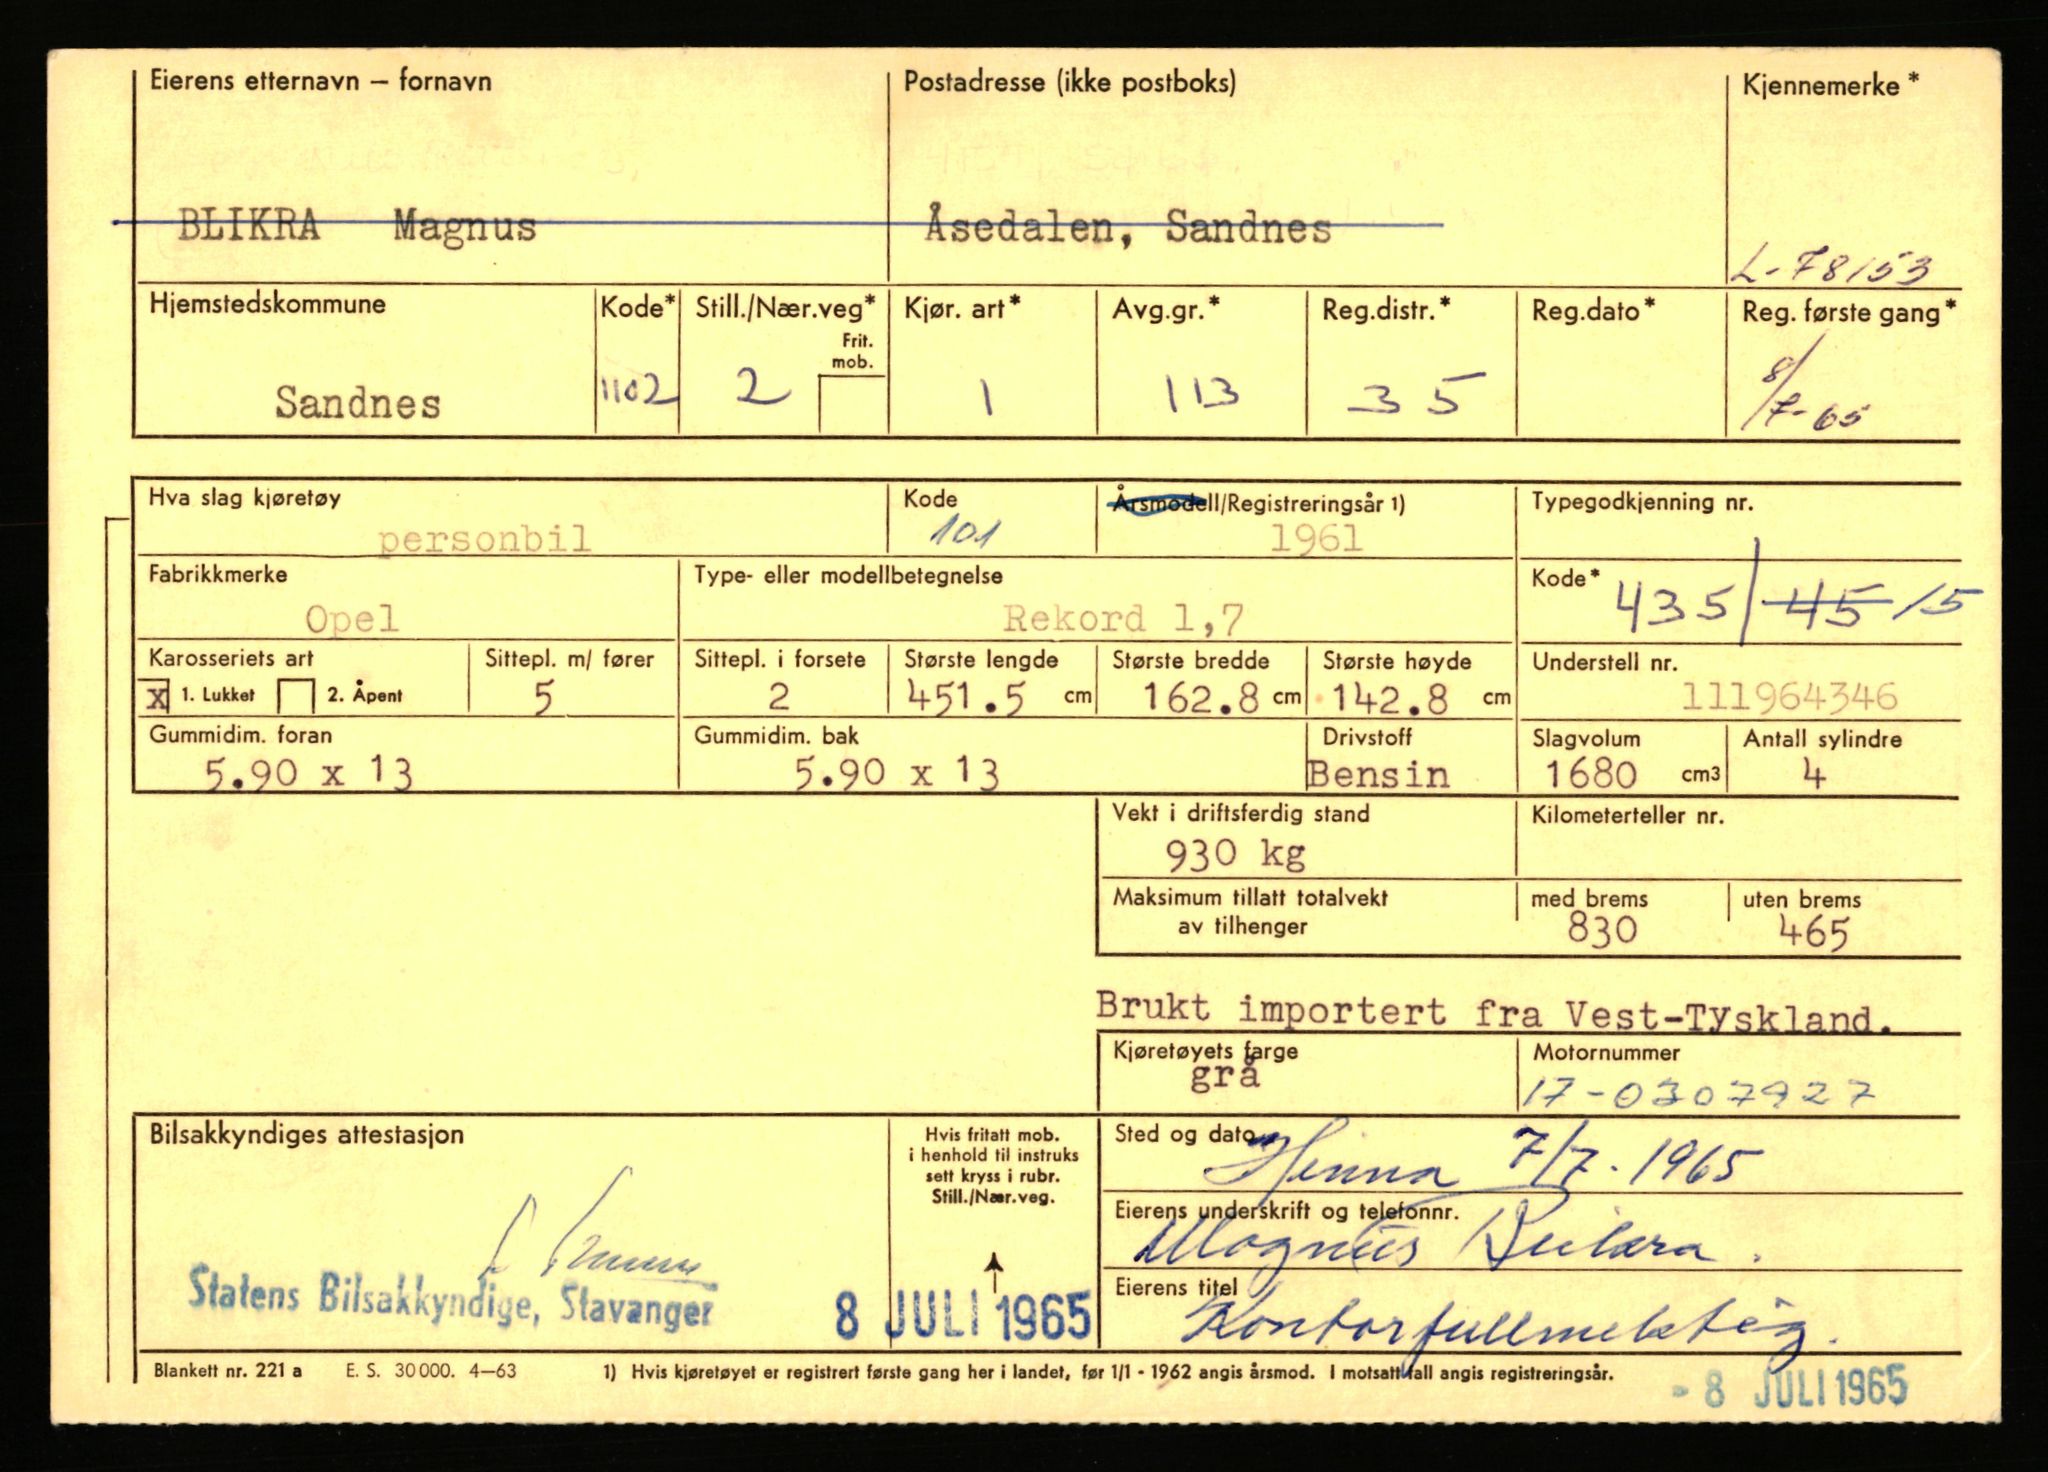 Eierens etternavn – fornavn Postadresse (ikke postboks) Kjennemerke *
BLIKRA Magnus Åsedalen, Sandnes
L-78153
Hjemstedskommune Kode* Still./Nær.veg* Kjør. art* Avg.gr.* Reg.distr.* Reg.dato* Reg. første gang*
Frit.
mob.
Sandnes 1102 2 1 113 35 8/7-65
Hva slag kjøretøy Kode Årsmodell/Registreringsår 1) Typegodkjenning nr.
personbil 101 1961
Fabrikkmerke Type- eller modellbetegnelse Kode*
Opel Rekord 1,7 435/45/5
Karosseriets art Sittepl. m/ fører Sittepl. i forsete Største lengde Største bredde Største høyde Understell nr.
x 1. Lukket 2. Åpent 5 2 451.5 cm 162.8 cm 142.8 cm 111964346
Gummidim. foran Gummidim. bak Drivstoff Slagvolum Antall sylindre
5.90 x 13 5.90 x 13 Bensin 1680 cm3 4
Vekt i driftsferdig stand Kilometerteller nr.
930 kg
Maksimum tillatt totalvekt med brems uten brems
av tilhenger 830 465
Brukt importert fra Vest-Tyskland.
Kjøretøyets farge Motornummer
grå 17-0307927
Bilsakkyndiges attestasjon Hvis fritatt mob. Sted og dato
i henhold til instruks
sett kryss i rubr.
Still./Nær.veg.
Hinna 7/7-1965
Eierens underskrift og telefonnr.
Magnus Blikra.
Eierens titel
Statens Bilsakkyndige, Stavanger 8 JULI 1965
Kontorfullmektig.
Blankett nr. 221 a E. S. 30000. 4–63 1) Hvis kjøretøyet er registrert første gang her i landet, før 1/1 - 1962 angis årsmod. I motsatt fall angis registreringsår.
- 8 JULI 1965